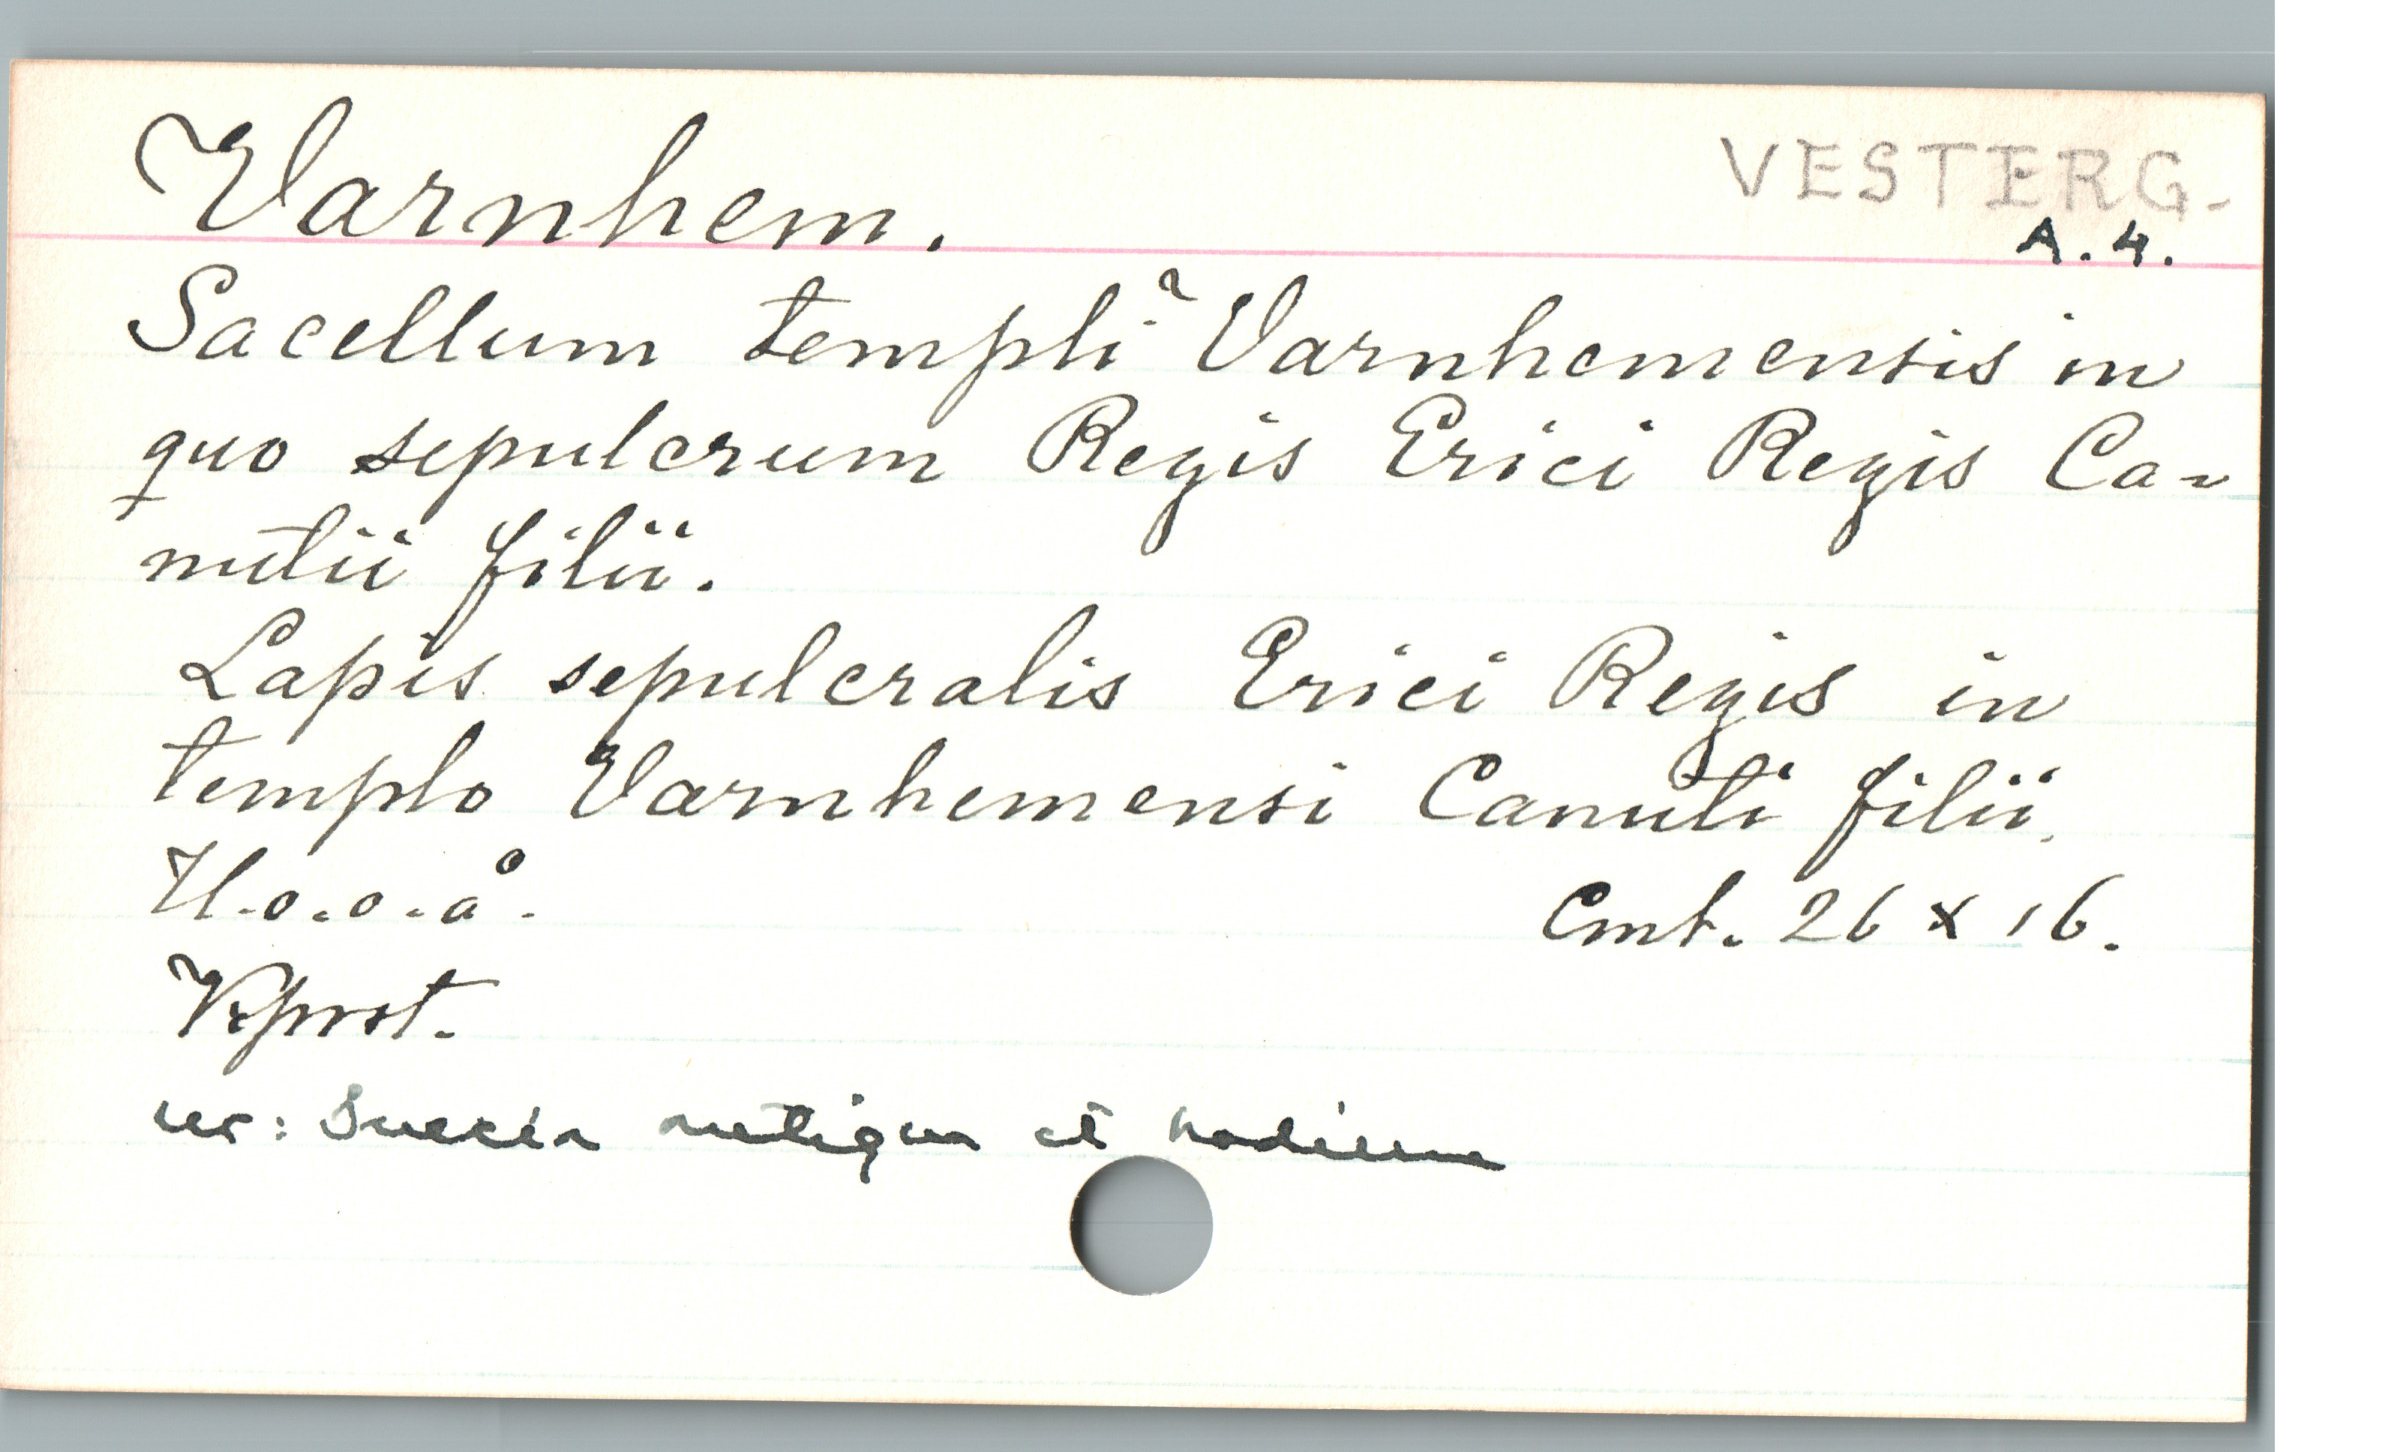 Varnhem.
VESTERG.
A.4.
Sacellum templi Varnhemensis in
quo sepulcrum Regis Erici Regis Ca-
nutii filii.
Lapis sepulcralis Erici Regis in
templo Varnhemensi Canuti filii.
H.o.o.å.
Cmt. 26 x 16.
Kprst.
ur: Suecia antiqua et hodierna